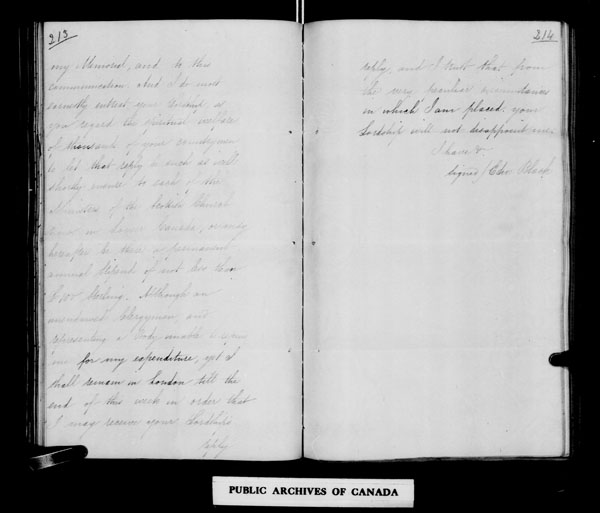 213
my Memorial, and to this
communication. And I do most
earnestly entreat your Lordship as
you regard the spiritual welfare
of thousands of your countrymen
to let that reply be such as will
shortly secure to each of the
Ministers of the Scottish Church
now in Lower Canada, or
hereafter to be there a permanent
annual stipend of not less than
Sterling. Although an
unendowed Clergyman, and
representing a Body unable to
me for my expenditure, yet I
shall remain in London till the
end of this week in order that
I may receive your Lordship's
reply
214
reply, and I trust that from
the very peculiar circumstances
in which I am placed your
Lordship will not disappoint me.
I have &c.
signed / Edw. Black
PUBLIC ARCHIVES OF CANADA